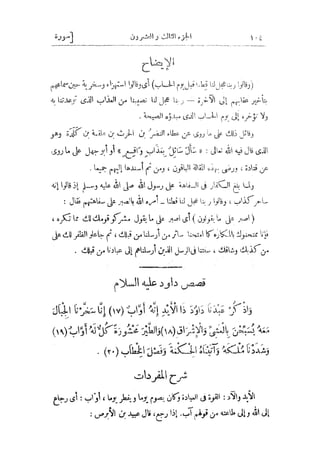 ١٠٤ الجزء الثالث والعشرون [سورة
الإيضاح
(وقالوا ربنا عجل لنا قطنا قبل يوم الحساب) أى وقالوا استهزاء وسخرية حين سماعهم
بتأخير عقابهم إلى الآخرة — ربنا عجل لنا نصيبنا من العذاب الذى توعدتنا به
ولا تؤخره إلى يوم الحساب الذى مبدؤه الصيحة .
وقائل ذلك على ما روى عن عطاء النضر بن الحرث بن علقمة بن كلدة وهو
الذى قال فيه الله تعالى : « سأل سائل بعذاب واقع » أو أبو جهل على ما روى
عن قتادة ، ورضى بهذه المقالة الباقون ، ومن ثم أسندها إليهم جميعا .
ولما بلغ الكفار فى السفاهة على رسول الله صلى الله عليه وسلم إذ قالوا إنه
ساحر كذاب ، وقالوا ربنا عجل لنا قطنا — أمره الله بالصبر على سفاهتهم فقال :
(اصبر على ما يقولون) أى اصبر على ما يقول مشركو قومك لك مما تكره ،
فإنا ممتحنوك بالمكاره كما امتحنا سائر من أرسلنا من قبلك ، ثم جاعلو الظفر لك على
من كذبك وشاقك ، سنتنا فى الرسل الذين أرسلناهم إلى عبادنا من قبلك .
قصص داود عليه السلام
وَاذْكُرْ عَبْدَنَا دَاوُدَ ذَا الْأَيْدِ إِنَّهُ أَوَّابٌ (١٧) إِنَّا سَخَّرْنَا الْجِبَالَ
مَعَهُ يُسَبِّحْنَ بِالْعَشِىِّ وَالْإِشْرَاقِ (١٨) وَالطَّيْرَ مَحْشُورَةً كُلٌّ لَهُ أَوَّابٌ (١٩)
وَشَدَدْنَا مُلْكَهُ وَآتَيْنَاهُ الْحِكْمَةَ وَفَصْلَ الْخِطَابِ (٢٠) .
شرح المفردات
الأيد والآد : القوة فى العبادة وكان يصوم يوما ويفطر يوما ، أواب : أى رجاع
إلى الله وإلى طاعته من قولهم آب . إذا رجع ، قال عبيد بن الأبرص :